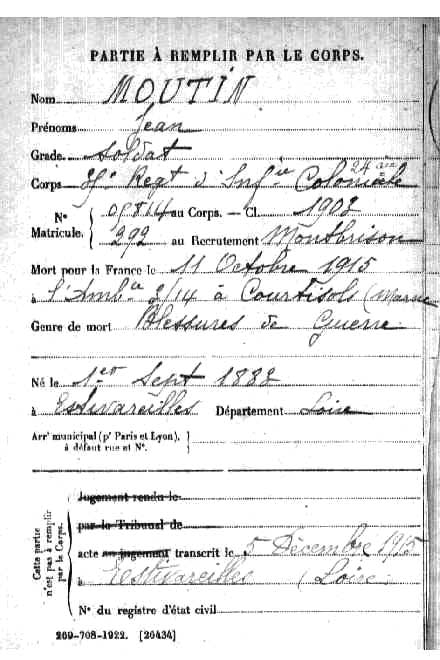 PARTIE À REMPLIR PAR LE CORPS.
Nom MOUTIN
Prénoms Jean
Grade Soldat
24 ème
Corps Regt d'Infie Coloniale
N° 09814 au Corps. — Cl. 1902
Matricule. 292 au Recrutement Montbrison
Mort pour la France le 11 Octobre 1915
à l'Ambce 3/14 à Courtisols (Marne
Genre de mort Blessures de Guerre
Né le 1er Sept 1882
à Estivareilles Département Loire
Arrt municipal (pr Paris et Lyon),
à défaut rue et N°.
Cette partie
n'est pas à remplir
par le Corps.
Jugement rendu le
par le Tribunal de
acte ou jugement transcrit le 5 Décembre 1915
à Estivareilles (Loire
N° du registre d'état civil
269-708-1922. [26434]